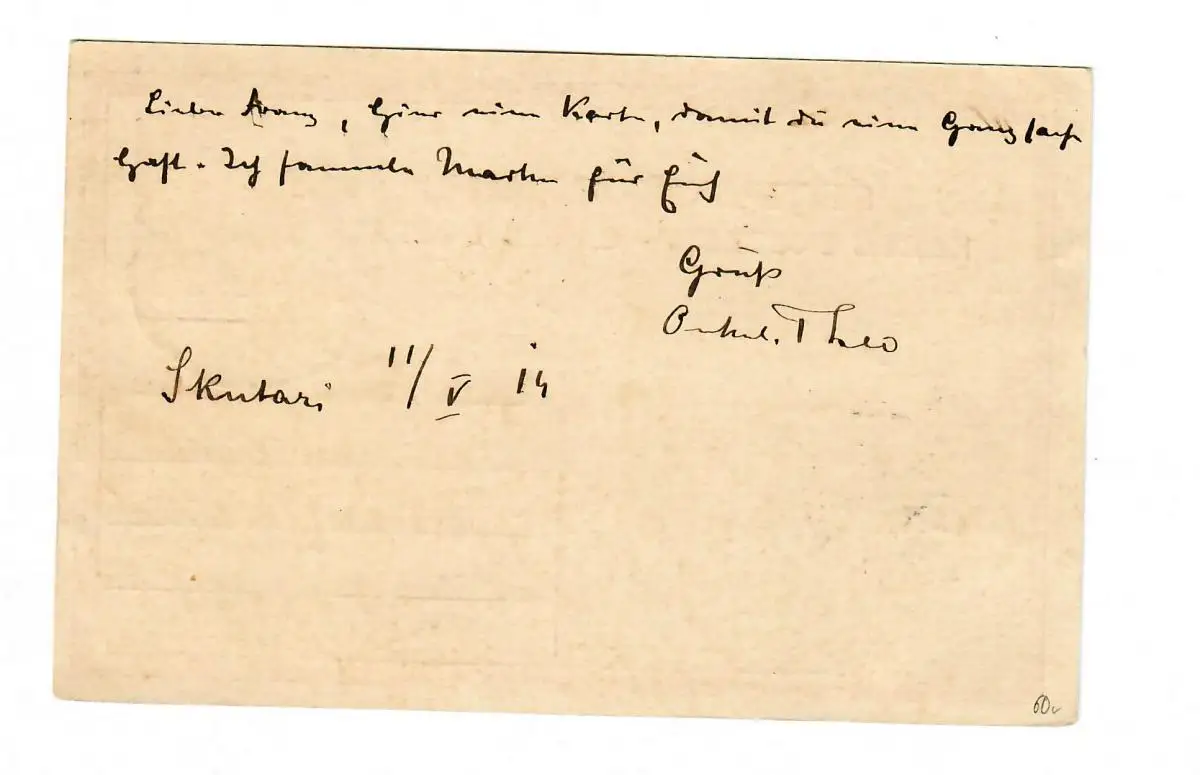 Lieber Franz, hier eine Karte, damit du eine Ganzsache
hast. Ich sammle Marken für Euch
Gruß
Onkel Theo
Skutari 11/V 14
60